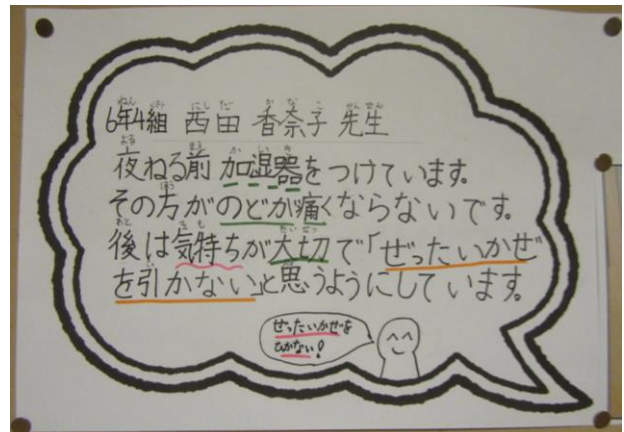 6年4組 西田 香奈子 先生
夜ねる前 加湿器をつけています。
その方がのどが痛くならないです。
後は気持ちが大切で「ぜったいかぜ
を引かない」と思うようにしています。
ぜったいかぜを
ひかない!